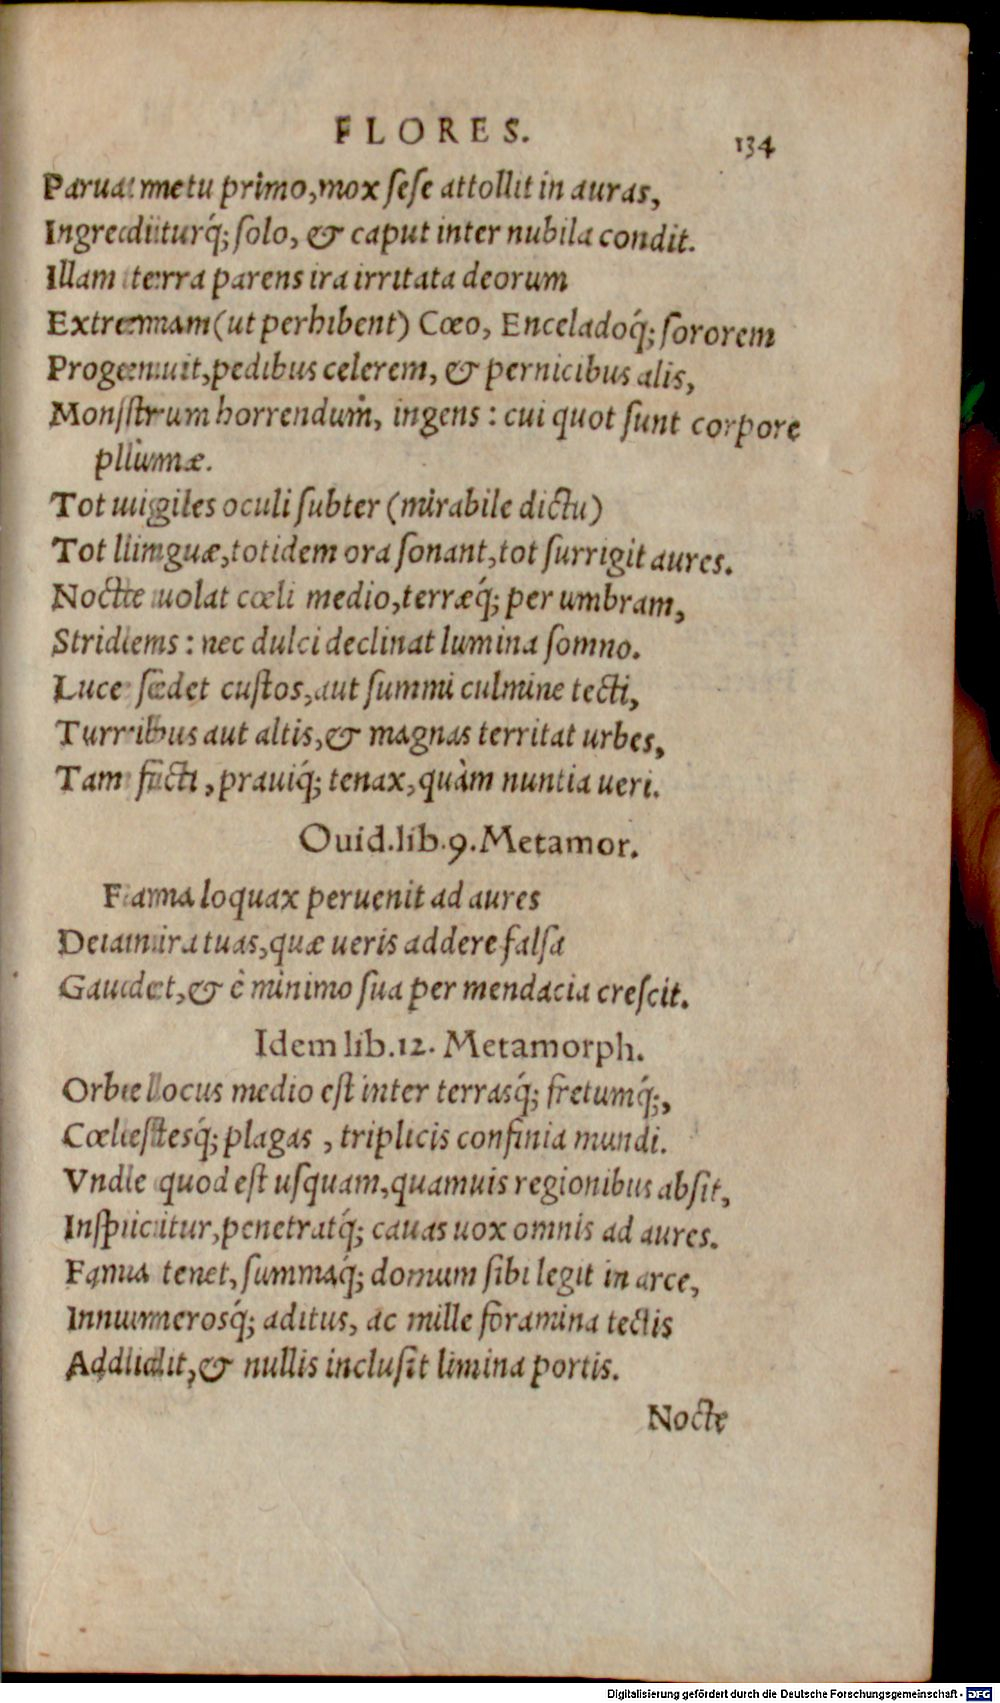 FLORES.
134
Parua metu primo, mox sese attollit in auras,
Ingrediturq́; solo, & caput inter nubila condit.
Illam terra parens ira irritata deorum
Extremam (ut perhibent) Cœo, Enceladoq́; sororem
Progenuit, pedibus celerem, & pernicibus alis,
Monstrum horrendum, ingens: cui quot sunt corpore
plumæ.
Tot uigiles oculi subter (mirabile dictu)
Tot linguæ, totidem ora sonant, tot surrigit aures.
Nocte uolat cœli medio, terræq́; per umbram,
Stridens: nec dulci declinat lumina somno.
Luce sedet custos, aut summi culmine tecti,
Turribus aut altis, & magnas territat urbes,
Tam ficti, prauiq́; tenax, quàm nuntia ueri.
Ouid. lib. 9. Metamor.
Fama loquax peruenit ad aures
Deianira tuas, quæ ueris addere falsa
Gaudet, & è minimo sua per mendacia crescit.
Idem lib. 12. Metamorph.
Orbe locus medio est inter terrasq́; fretumq́;,
Cœlestesq́; plagas, triplicis confinia mundi.
Vnde quod est usquam, quamuis regionibus absit,
Inspicitur, penetratq́; cauas uox omnis ad aures.
Fama tenet, summaq́; domum sibi legit in arce,
Innumerosq́; aditus, ac mille foramina tectis
Addidit, & nullis inclusit limina portis.
Nocte
Digitalisierung gefördert durch die Deutsche Forschungsgemeinschaft - DFG